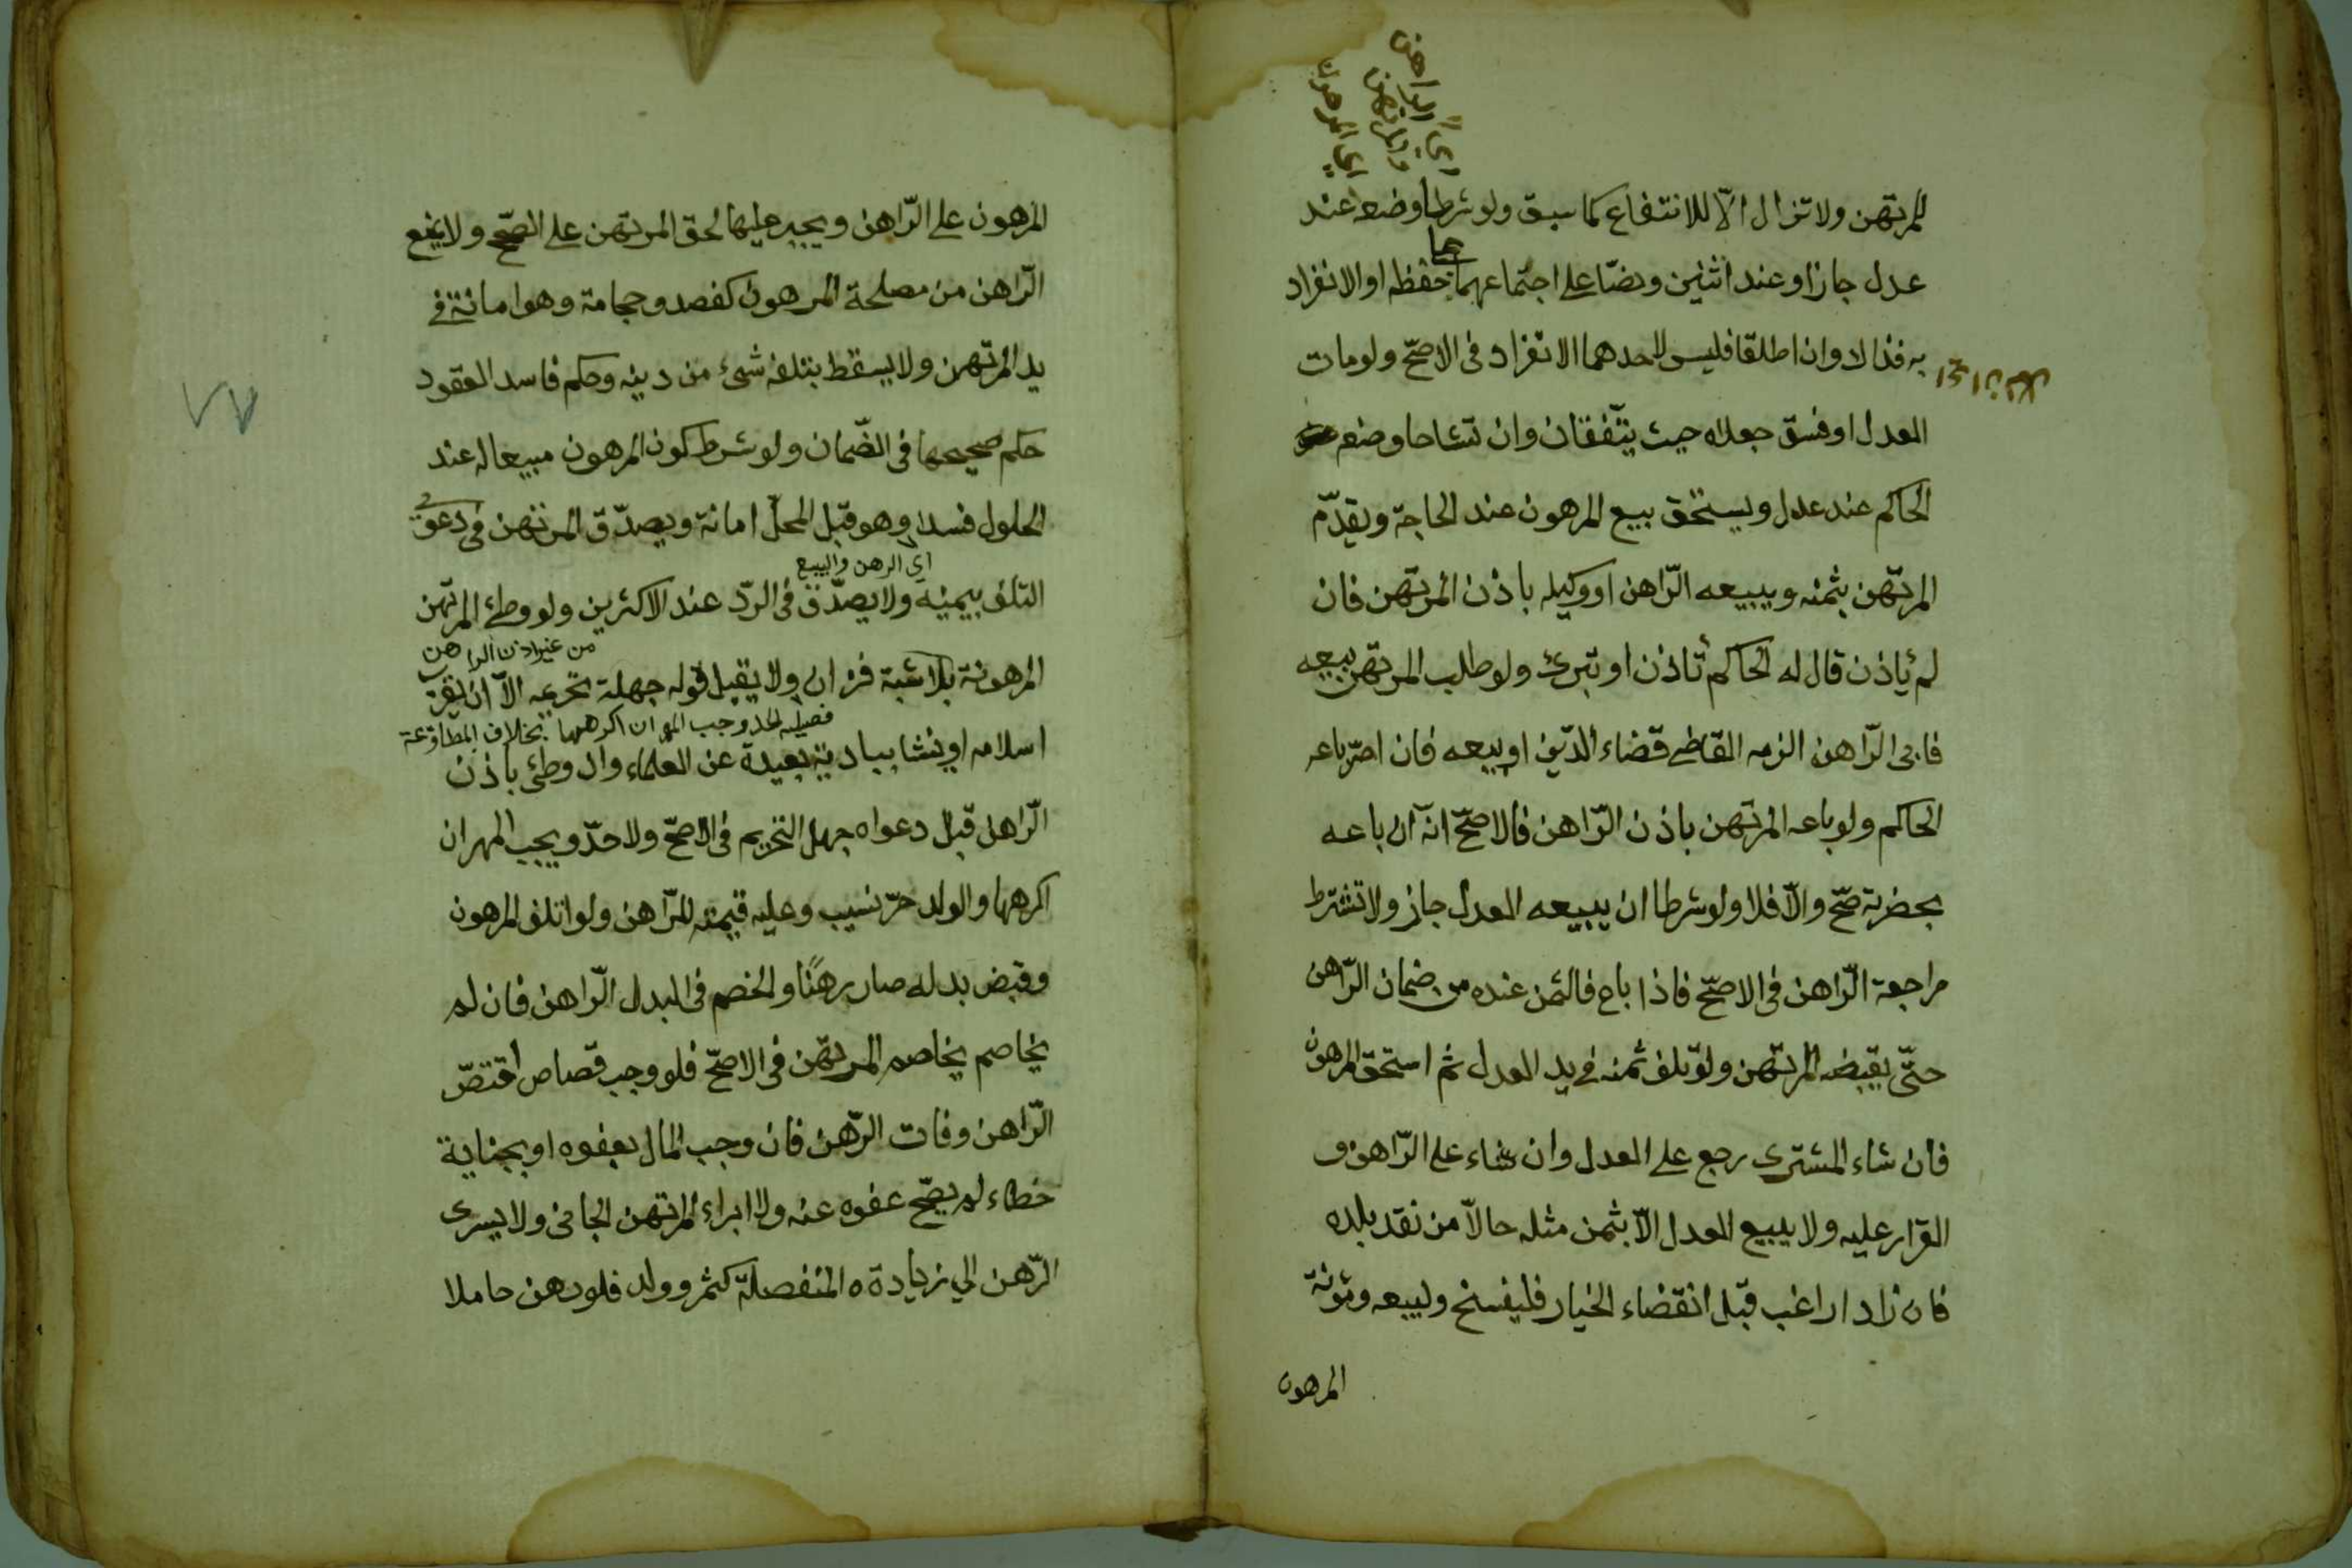 اى الراهن
والمرتهن
اى المرهون
للمرتهن ولا تزال الّا للانتفاع كما سبق ولو شرطا وضعه عند
عدل جاز او عند اثنين ونصّا على اجتماعهما على حفظه او الانفراد
به فذالا وان اطلقا فليس لاحدهما الانفراد فى الاصحّ ولو مات
العدل او فسق جعلاه حيث يتّفقان وان تشاحا وضعه
الحاكم عند عدل ويستحق بيع المرهون عند الحاجة ويقدّم
المرتهن بثمنه ويبيعه الرّاهن او وكيله باذن المرتهن فان
لم يأذن قال له الحاكم تأذن او تبرئ ولو طلب المرتهن بيعه
فابى الرّاهن الزمه القاضى قضاء الدّين او بيعه فان اصرّ باعه
الحاكم ولو باعه المرتهن باذن الرّاهن فالاصحّ انّه ان باعه
بحضرته صحّ والّا فلا ولو شرطا ان يبيعه العدل جاز ولا تشترط
مراجعة الرّاهن فى الاصحّ فاذا باع فالثمن عنده من ضمان الرّاهن
حتّى يقبضه المرتهن ولو تلف ثمنه فى يد العدل ثم استحق المرهون
فان شاء المشترى رجع على العدل وان شاء على الرّاهن و
القرار عليه ولا يبيع العدل الّا بثمن مثله حالّا من نقد بلده
فان زاد راغب قبل انقضاء الخيار فليفسخ وليبعه ومؤنة
المرهون
المرهون على الرّاهن ويجبر عليها لحق المرتهن على الصّحيح ولا يمنع
الرّاهن من مصلحة المرهون كفصد وحجامة وهو امانة فى
يد المرتهن ولا يسقط بتلفه شىء من دينه وحكم فاسد العقود
حكم صحيحها فى الضّمان ولو شرط كون المرهون مبيعا له عند
الحلول فسدا وهو قبل المحلّ امانة ويصدّق المرتهن فى دعوى
اى الرهن والبيع
التلف بيمينه ولا يصدّق فى الردّ عند الاكثرين ولو وطئ المرتهن
من غير اذن الراهن
المرهونة بلا شبهة فزان ولا يقبل قوله جهلت تحريمه الّا ان يقرب
وجب المهر ان اكرهها بخلاف المطاوعة
اسلامه او ينشا ببادية بعيدة عن العلماء وان وطئ باذن
الرّاهن قبل دعواه جهل التحريم فى الاصحّ ولا حدّ ويجب المهر ان
اكرهها والولد حرّ نسيب وعليه قيمته للرّاهن ولو اتلف المرهون
وقبض بدله صار رهنًا والخصم فى البدل الرّاهن فان لم
يخاصم لم يخاصم المرتهن فى الاصحّ فلو وجب قصاص اقتصّ
الرّاهن وفات الرّهن فان وجب المال بعفوه او بجناية
خطاء لم يصّح عفوه عنه ولا ابراء المرتهن الجانى ولا يسرى
الرّهن الي زيادته المنفصلة كثمر وولد فلو رهن حاملا